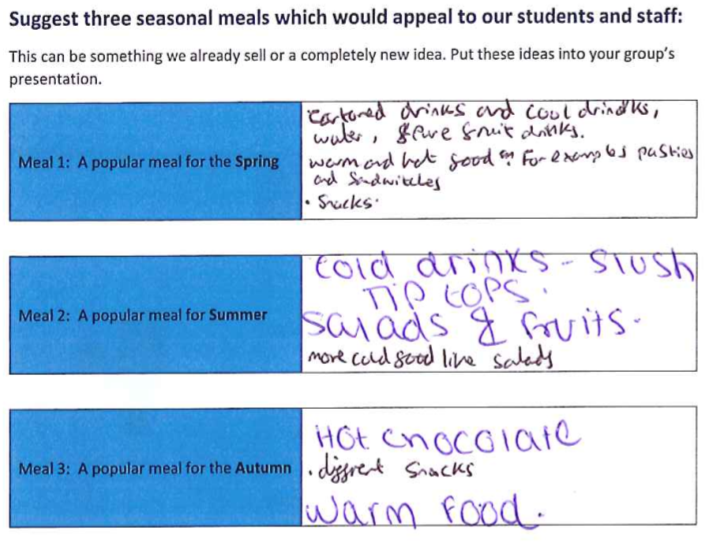 Suggest three seasonal meals which would appeal to our students and staff:
This can be something we already sell or a completely new idea. Put these ideas into your group's
presentation.
Meal 1: A popular meal for the Spring
Cartoned drinks and cool drinks,
water, fruit drinks.
warm and hot food For examples pasties
and Sandwitches
• Snacks.
Meal 2: A popular meal for Summer
Cold drinks - Slush
Tip tops.
Salads & fruits.
more cold food like salads
Meal 3: A popular meal for the Autumn
Hot chocolate
• diffrent Snacks
Warm food.